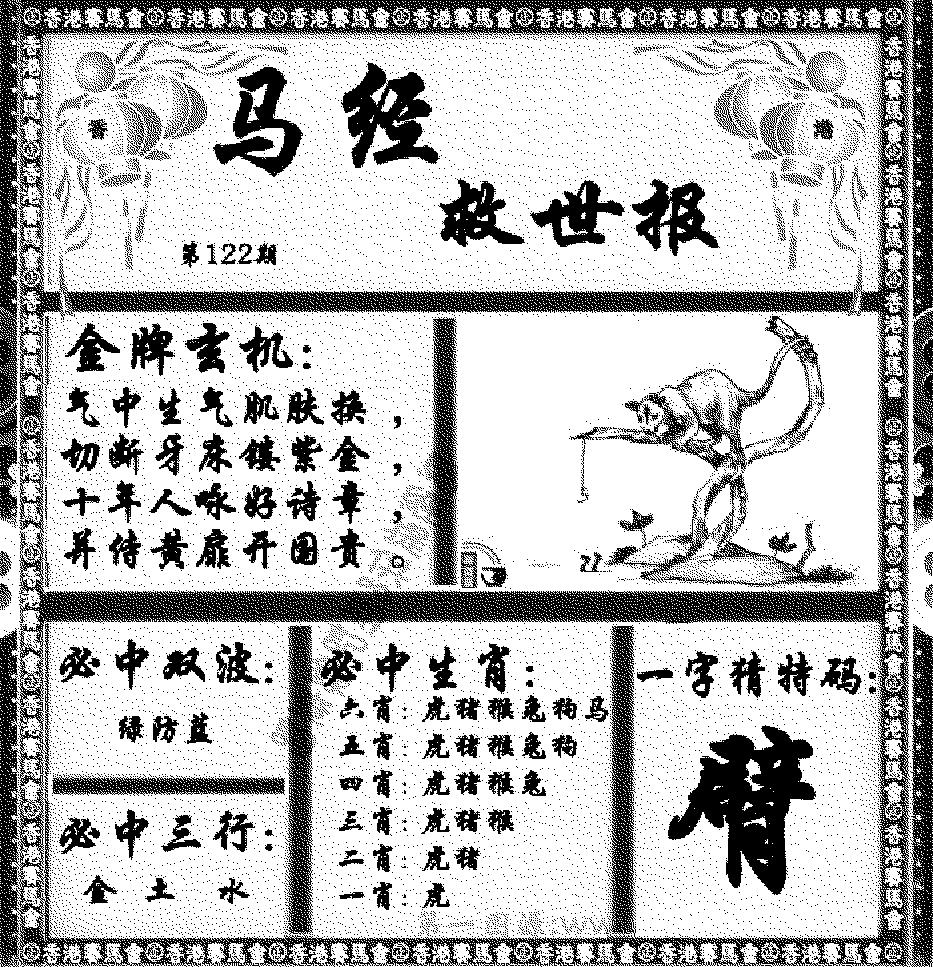 香港賽馬會香港賽馬會香港賽馬會香港賽馬會香港賽馬會香港賽馬會香港賽馬會
香
港
马经
救世报
第122期
金牌玄机:
气中生气肌肤换，
切断牙床镂紫金，
十年人咏好诗章，
并侍黄扉开国贵。
必中双波:
绿防蓝
必中三行:
金 土 水
必中生肖:
六肖: 虎猪猴兔狗马
五肖: 虎猪猴兔狗
四肖: 虎猪猴兔
三肖: 虎猪猴
二肖: 虎猪
一肖: 虎
一字猜特码:
臂
香港賽馬會香港賽馬會香港賽馬會香港賽馬會香港賽馬會香港賽馬會香港賽馬會